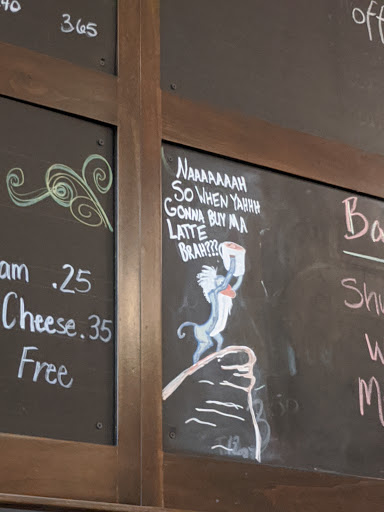 365
off
am .25
Cheese .35
Free
NAAAAAAAH
SO WHEN YAHHH
GONNA BUY MA
LATTE
BRAH???
Ba
Sh
W
M